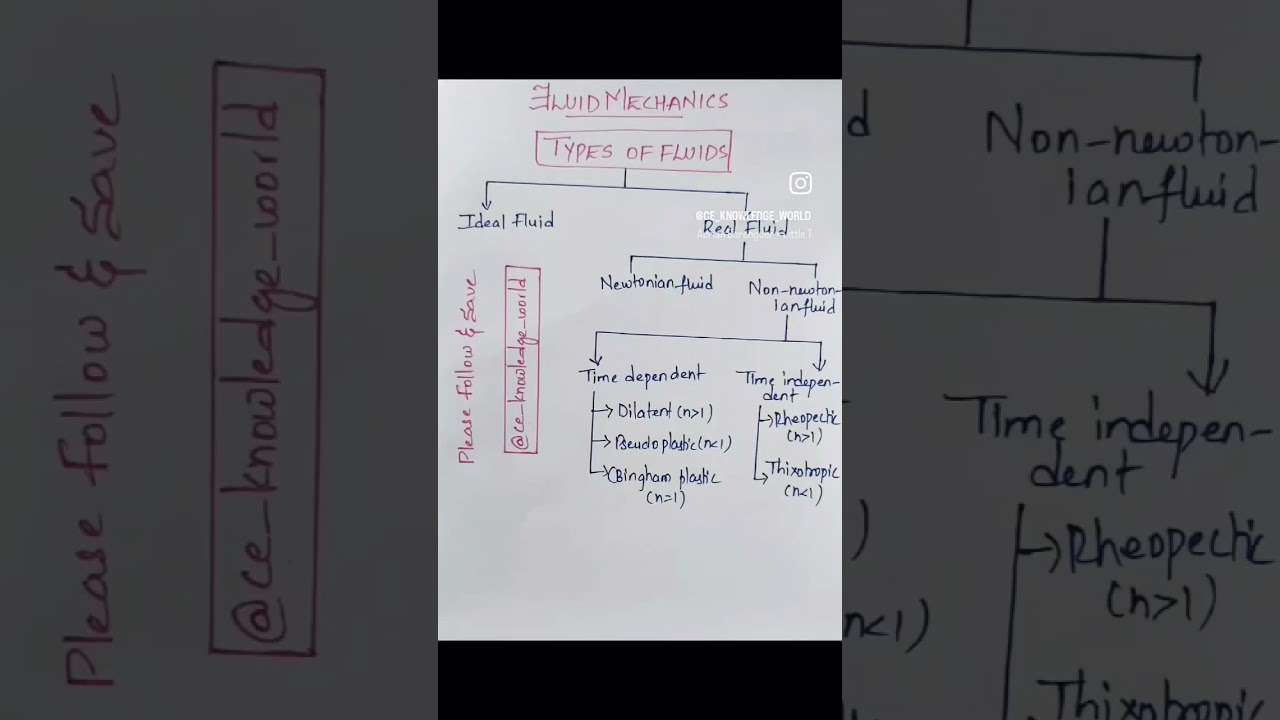 FLUID MECHANICS
TYPES OF FLUIDS
Ideal Fluid
@CE_KNOWLEDGE_WORLD
Real Fluid
Newtonian fluid
Non-newton-
ian fluid
Time dependent
Dilatent (n>1)
Pseudoplastic (n<1)
Bingham plastic
(n=1)
Time indepen-
dent
Rheopectic
(n>1)
Thixotropic
(n<1)
Please Follow & Save
@ce_knowledge_world
Please Follow & Save
@ce_knowledge_world
d
Non-newton-
ian fluid
Time indepen-
dent
)
Rheopectic
(n>1)
n<1)
Thixotropic